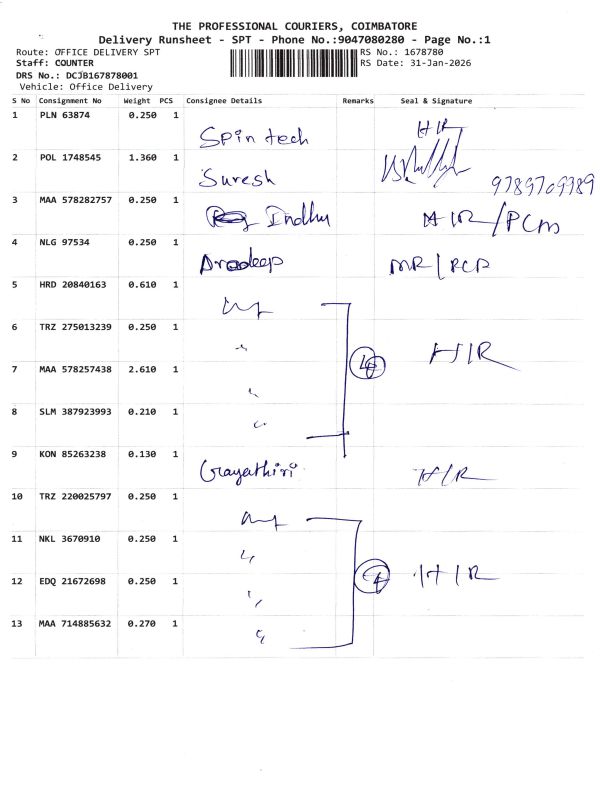 THE PROFESSIONAL COURIERS, COIMBATORE
Delivery Runsheet - SPT - Phone No.:9047080280 - Page No.:1
Route: OFFICE DELIVERY SPT
RS No.: 1678780
Staff: COUNTER
RS Date: 31-Jan-2026
DRS No.: DCJB167878001
Vehicle: Office Delivery
S No Consignment No Weight PCS Consignee Details Remarks Seal & Signature
1 PLN 63874 0.250 1 Spin tech H/R
2 POL 1748545 1.360 1 Suresh 9789709989
3 MAA 578282757 0.250 1 Indhu H/R/PCM
4 NLG 97534 0.250 1 Pradeep MR/RCP
5 HRD 20840163 0.610 1
6 TRZ 275013239 0.250 1 H/R
7 MAA 578257438 2.610 1
8 SLM 387923993 0.210 1
9 KON 85263238 0.130 1 Gayathiri H/R
10 TRZ 220025797 0.250 1
11 NKL 3670910 0.250 1
12 EDQ 21672698 0.250 1 H/R
13 MAA 714885632 0.270 1